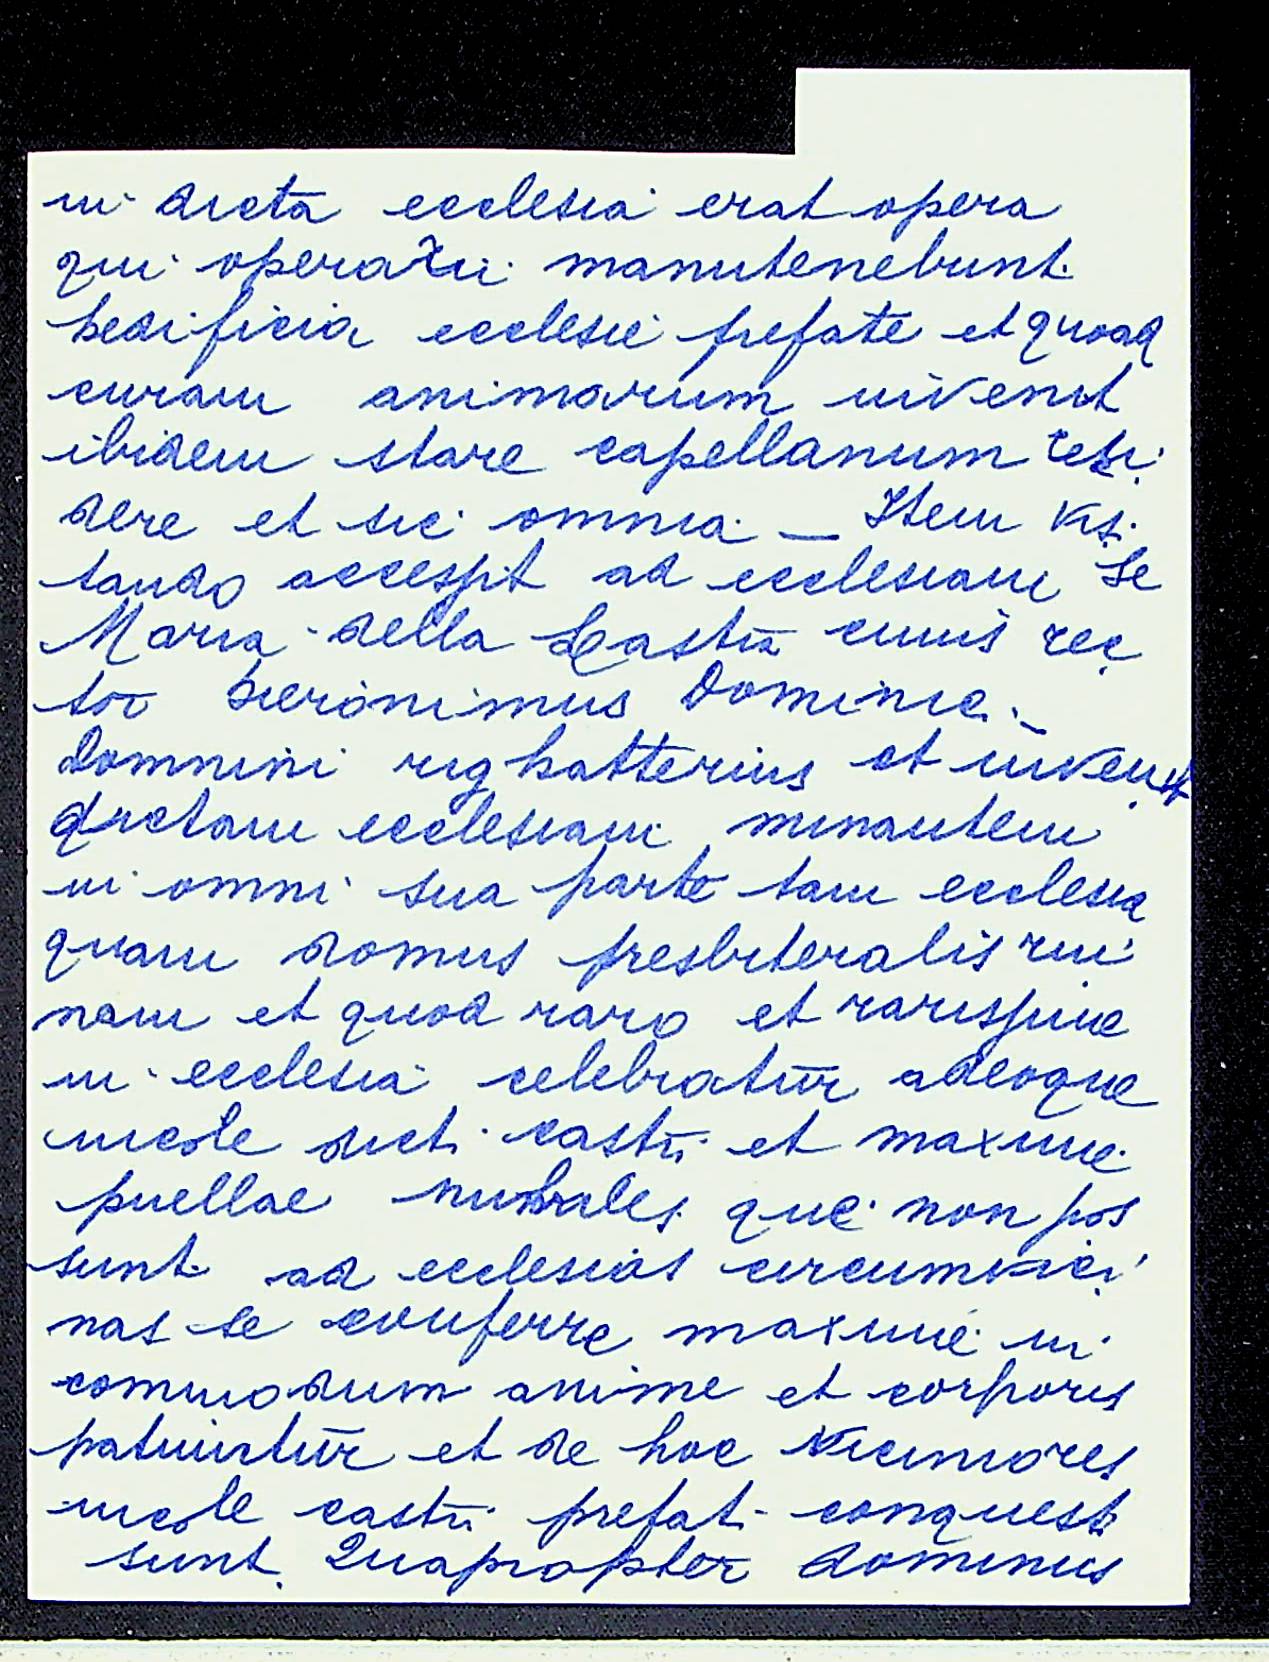 in dicta ecclesia erat opera
qui operarii manutenebunt
hedificia ecclesie prefate et quoad
curam animarum invenit
ibidem stare capellanum resi
dere et sic omnia – Item visi
tando accessit ad ecclesiam Se
Maria della Castra cuius rec
tor hieronimus Dominici
Domnini righatterius et invenit
dictam ecclesiam minantem
in omni sua parte tam ecclesia
quam domus presbiteralis rui
nam et quod raro et rarissime
in ecclesia celebratur adeoque
incole dicti castri et maxime
puellae nubiles que non pos
sunt ad ecclesias circumvici
nas se conferre maxime in
commodum anime et corporis
patiuntur et de hoc viciniores
incole castri prefati conquesti
sunt. Quapropter dominus